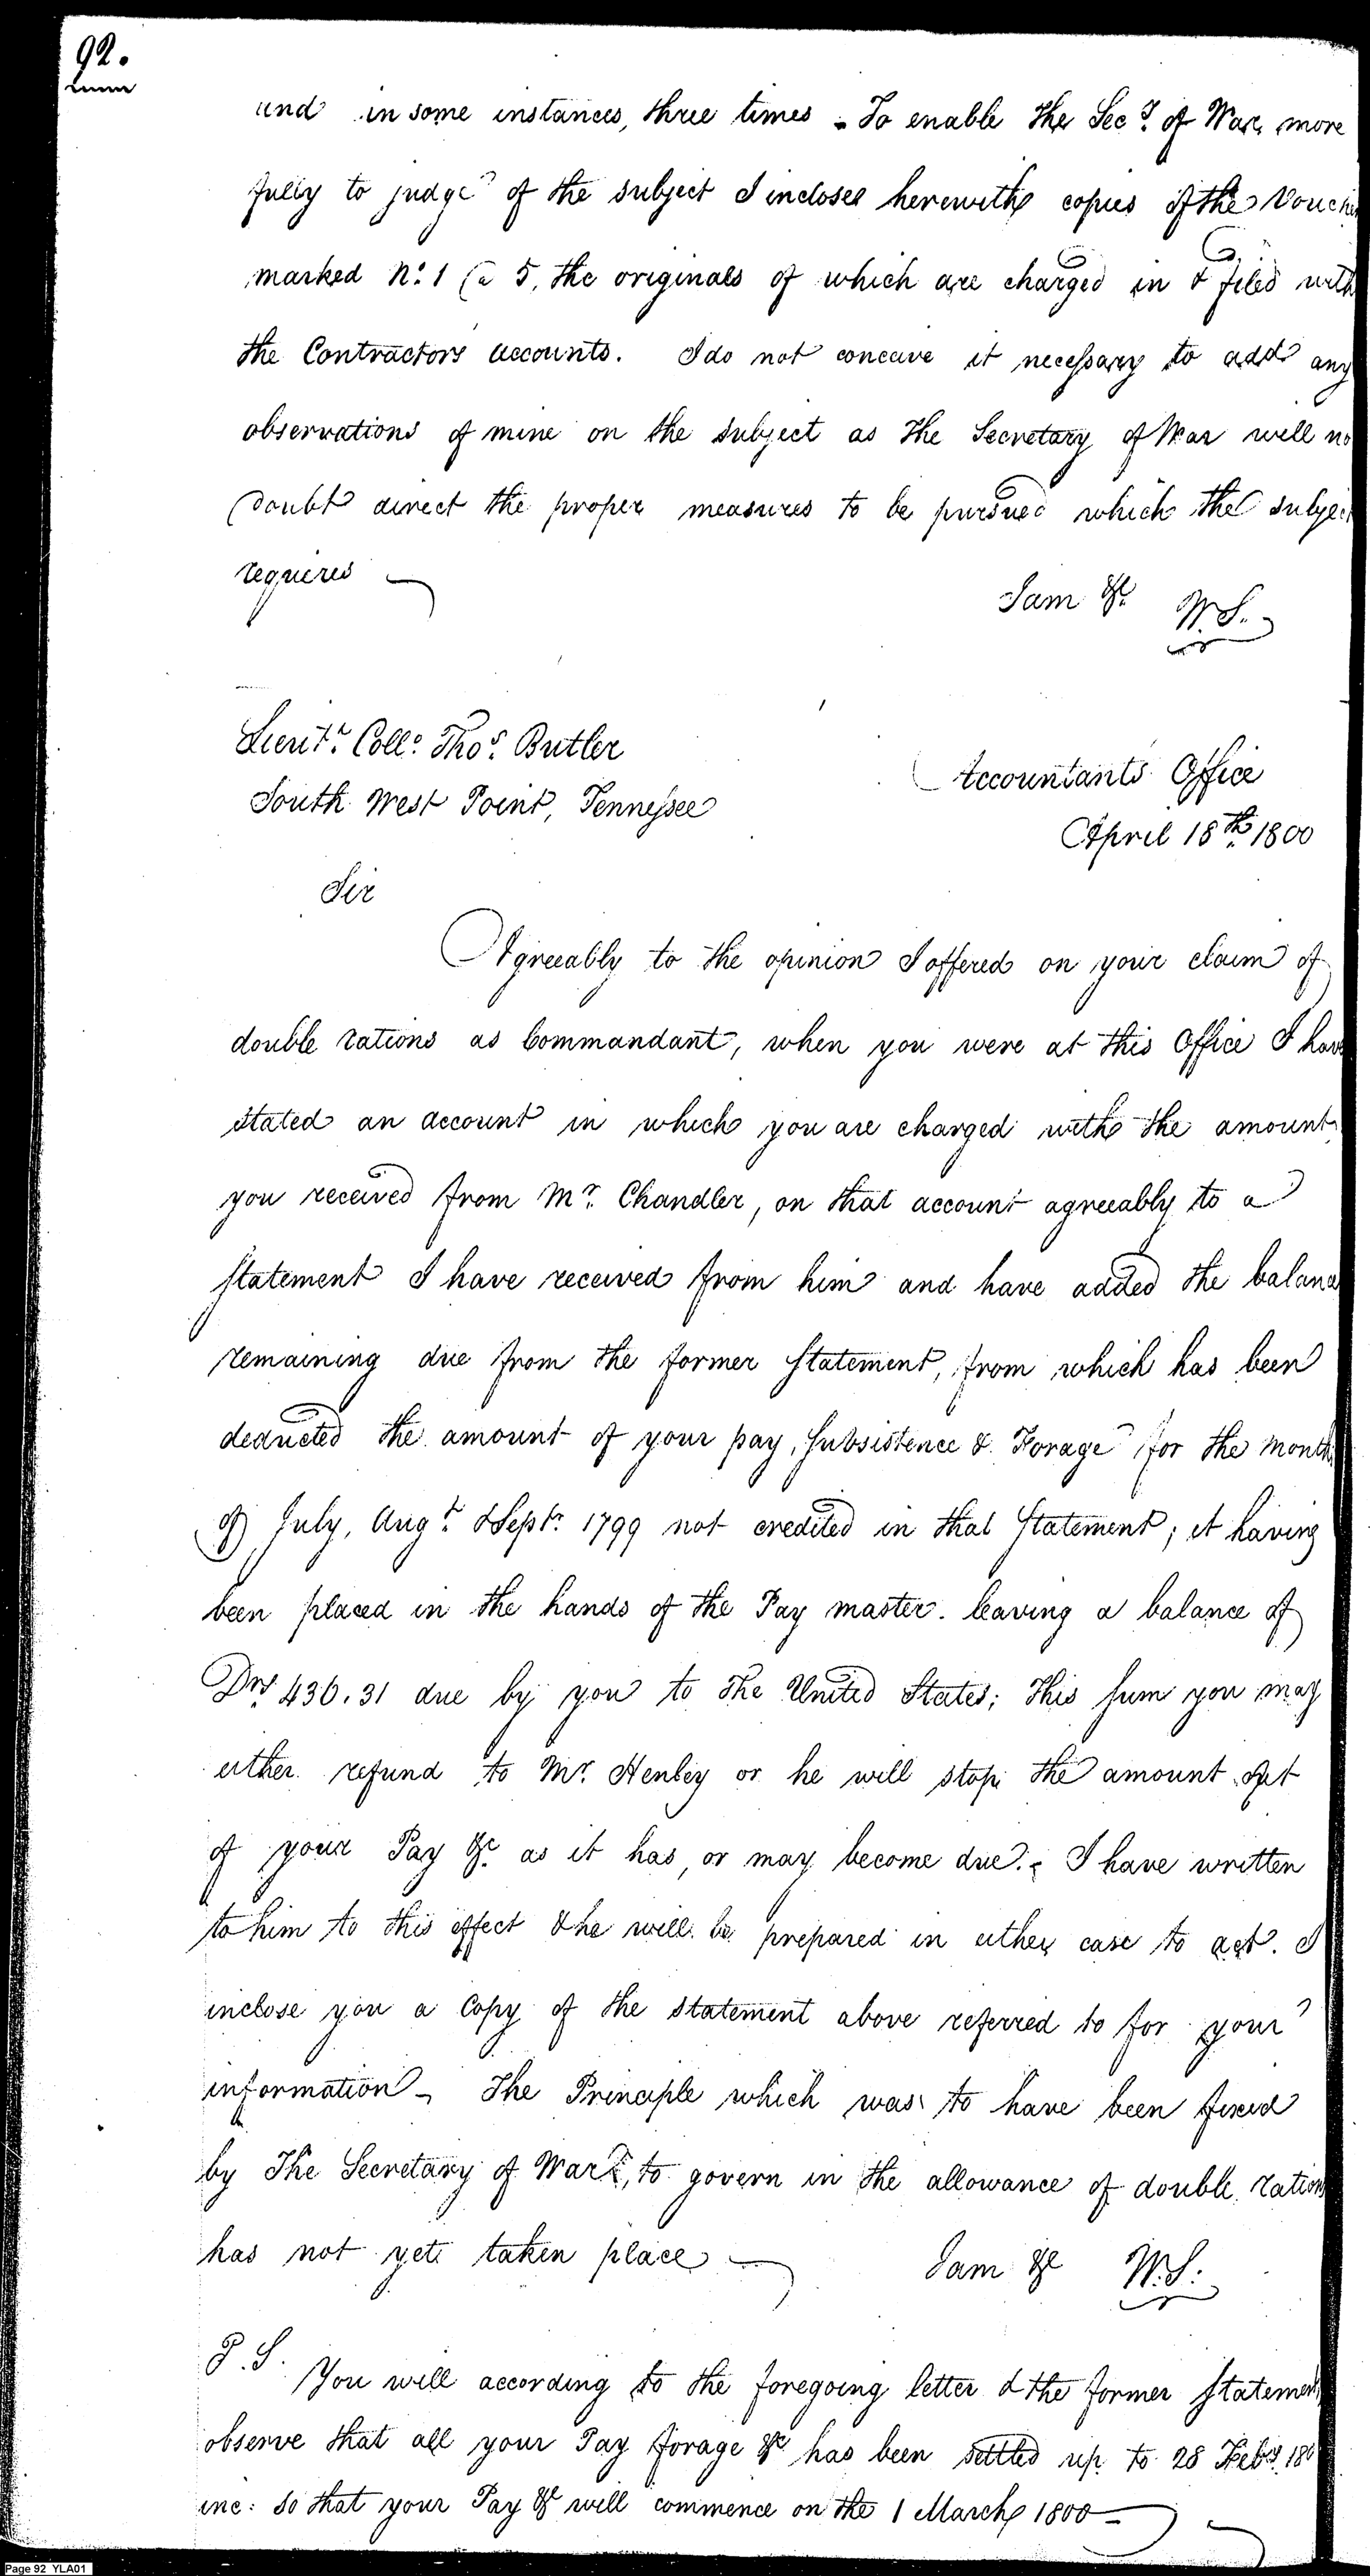 92.
and in some instances, three times - To enable the Secy. of War, more
fully to judge of the subject I inclose herewith copies of the Vouche
marked No. 1 @ 5, the originals of which are charged in & filed with
the Contractors accounts. I do not conceive it necessary to add any
observations of mine on the subject as the Secretary of War will no
doubt direct the proper measures to be pursued which the subject
requires
I am &c. W. S.
Lieut. Coll. Thos. Butler
South West Point, Tennessee
Accountants Office
April 18th. 1800
Sir
Agreeably to the opinion I offered on your claim of
double rations as Commandant, when you were at this Office I have
stated an account in which you are charged with the amount
you received from Mr. Chandler, on that account agreeably to a
statement I have received from him and have added the balance
remaining due from the former statement, from which has been
deducted the amount of your pay, subsistence & Forage for the month
of July, Augt. & Sept. 1799 not credited in that statement; it having
been placed in the hands of the Pay master. leaving a balance of
Drs 436.31 due by you to the United States; this sum you may
either refund to Mr. Henley or he will stop the amount out
of your Pay &c. as it has, or may become due. - I have written
to him to this effect & he will be prepared in either case to act. I
inclose you a Copy of the statement above referred to for your
information - The Principle which was to have been fixed
by the Secretary of War, to govern in the allowance of double rations
has not yet taken place
I am &c W. S.
P. S. You will according to the foregoing letter & the former statement
observe that all your Pay forage &c has been settled up to 28 Feby. 180
inc: so that your Pay &c will commence on the 1 March 1800 -
Page 92 YLA01